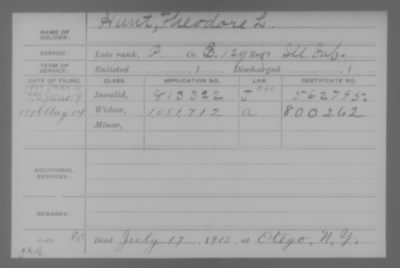 NAME OF SOLDIER: Hunt, Theodore L.
SERVICE: Late rank, P. Co. B, 129 Reg't Ill. Inf.
TERM OF SERVICE: Enlisted , 1 Discharged , 1
DATE OF FILING. CLASS. APPLICATION NO. LAW. CERTIFICATE NO.
Invalid, 813322 J 562795
1918 Aug 14 Widow, 1051712 a 800262
Minor,
ADDITIONAL SERVICES:
REMARKS:
Died July 17 1915, at Otego, N.Y.